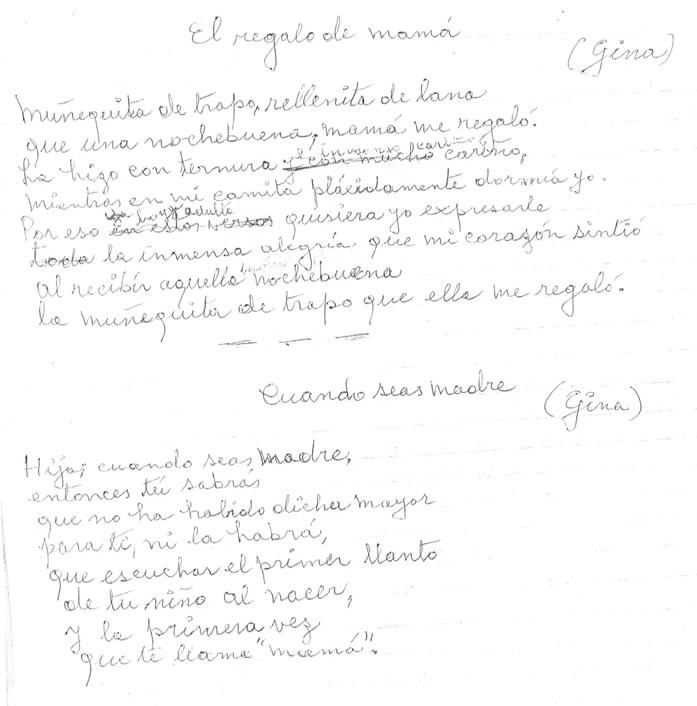 El regalo de mamá
(Gina)
Muñequita de trapo, rellenita de lana
que una nochebuena, mamá me regaló.
La hizo con ternura y con mucho cariño,
mientras en mi camita plácidamente dormía yo.
hoy adulta
Por eso en estos versos quisiera yo expresarle
toda la inmensa alegría que mi corazón sintió
al recibir aquella nochebuena
la muñequita de trapo que ella me regaló.
Cuando seas madre
(Gina)
Hija; cuando seas madre,
entonces tú sabrás
que no ha habido dicha mayor
para ti, ni la habrá,
que escuchar el primer llanto
de tu niño al nacer,
y la primera vez
que te llame "mamá".